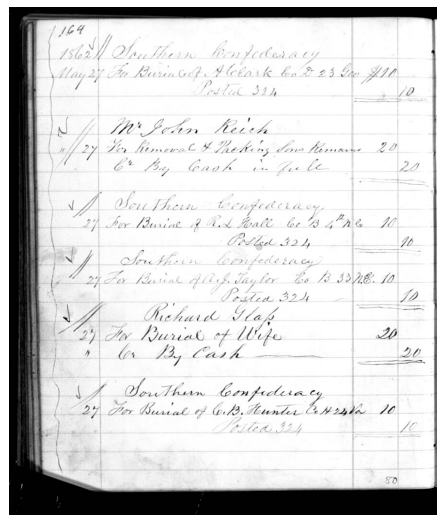 164
1862 Southern Confederacy
May 27 For Burial of A Clark Co D 23 Geo $10
Posted 324 10
Mr John Reich
" 27 For Removal & Packing Sons Remains 20
Cr By Cash in full 20
Southern Confederacy
27 For Burial of R. L Hall Co B 4th N C 10
Posted 324 10
Southern Confederacy
27 For Burial of A. J. Taylor Co B 33 N.C. 10
Posted 324 10
Richard Glass
27 For Burial of Wife 20
" Cr By Cash 20
Southern Confederacy
27 For Burial of C. B. Hunter Co H 24 Va 10
Posted 324 10
80